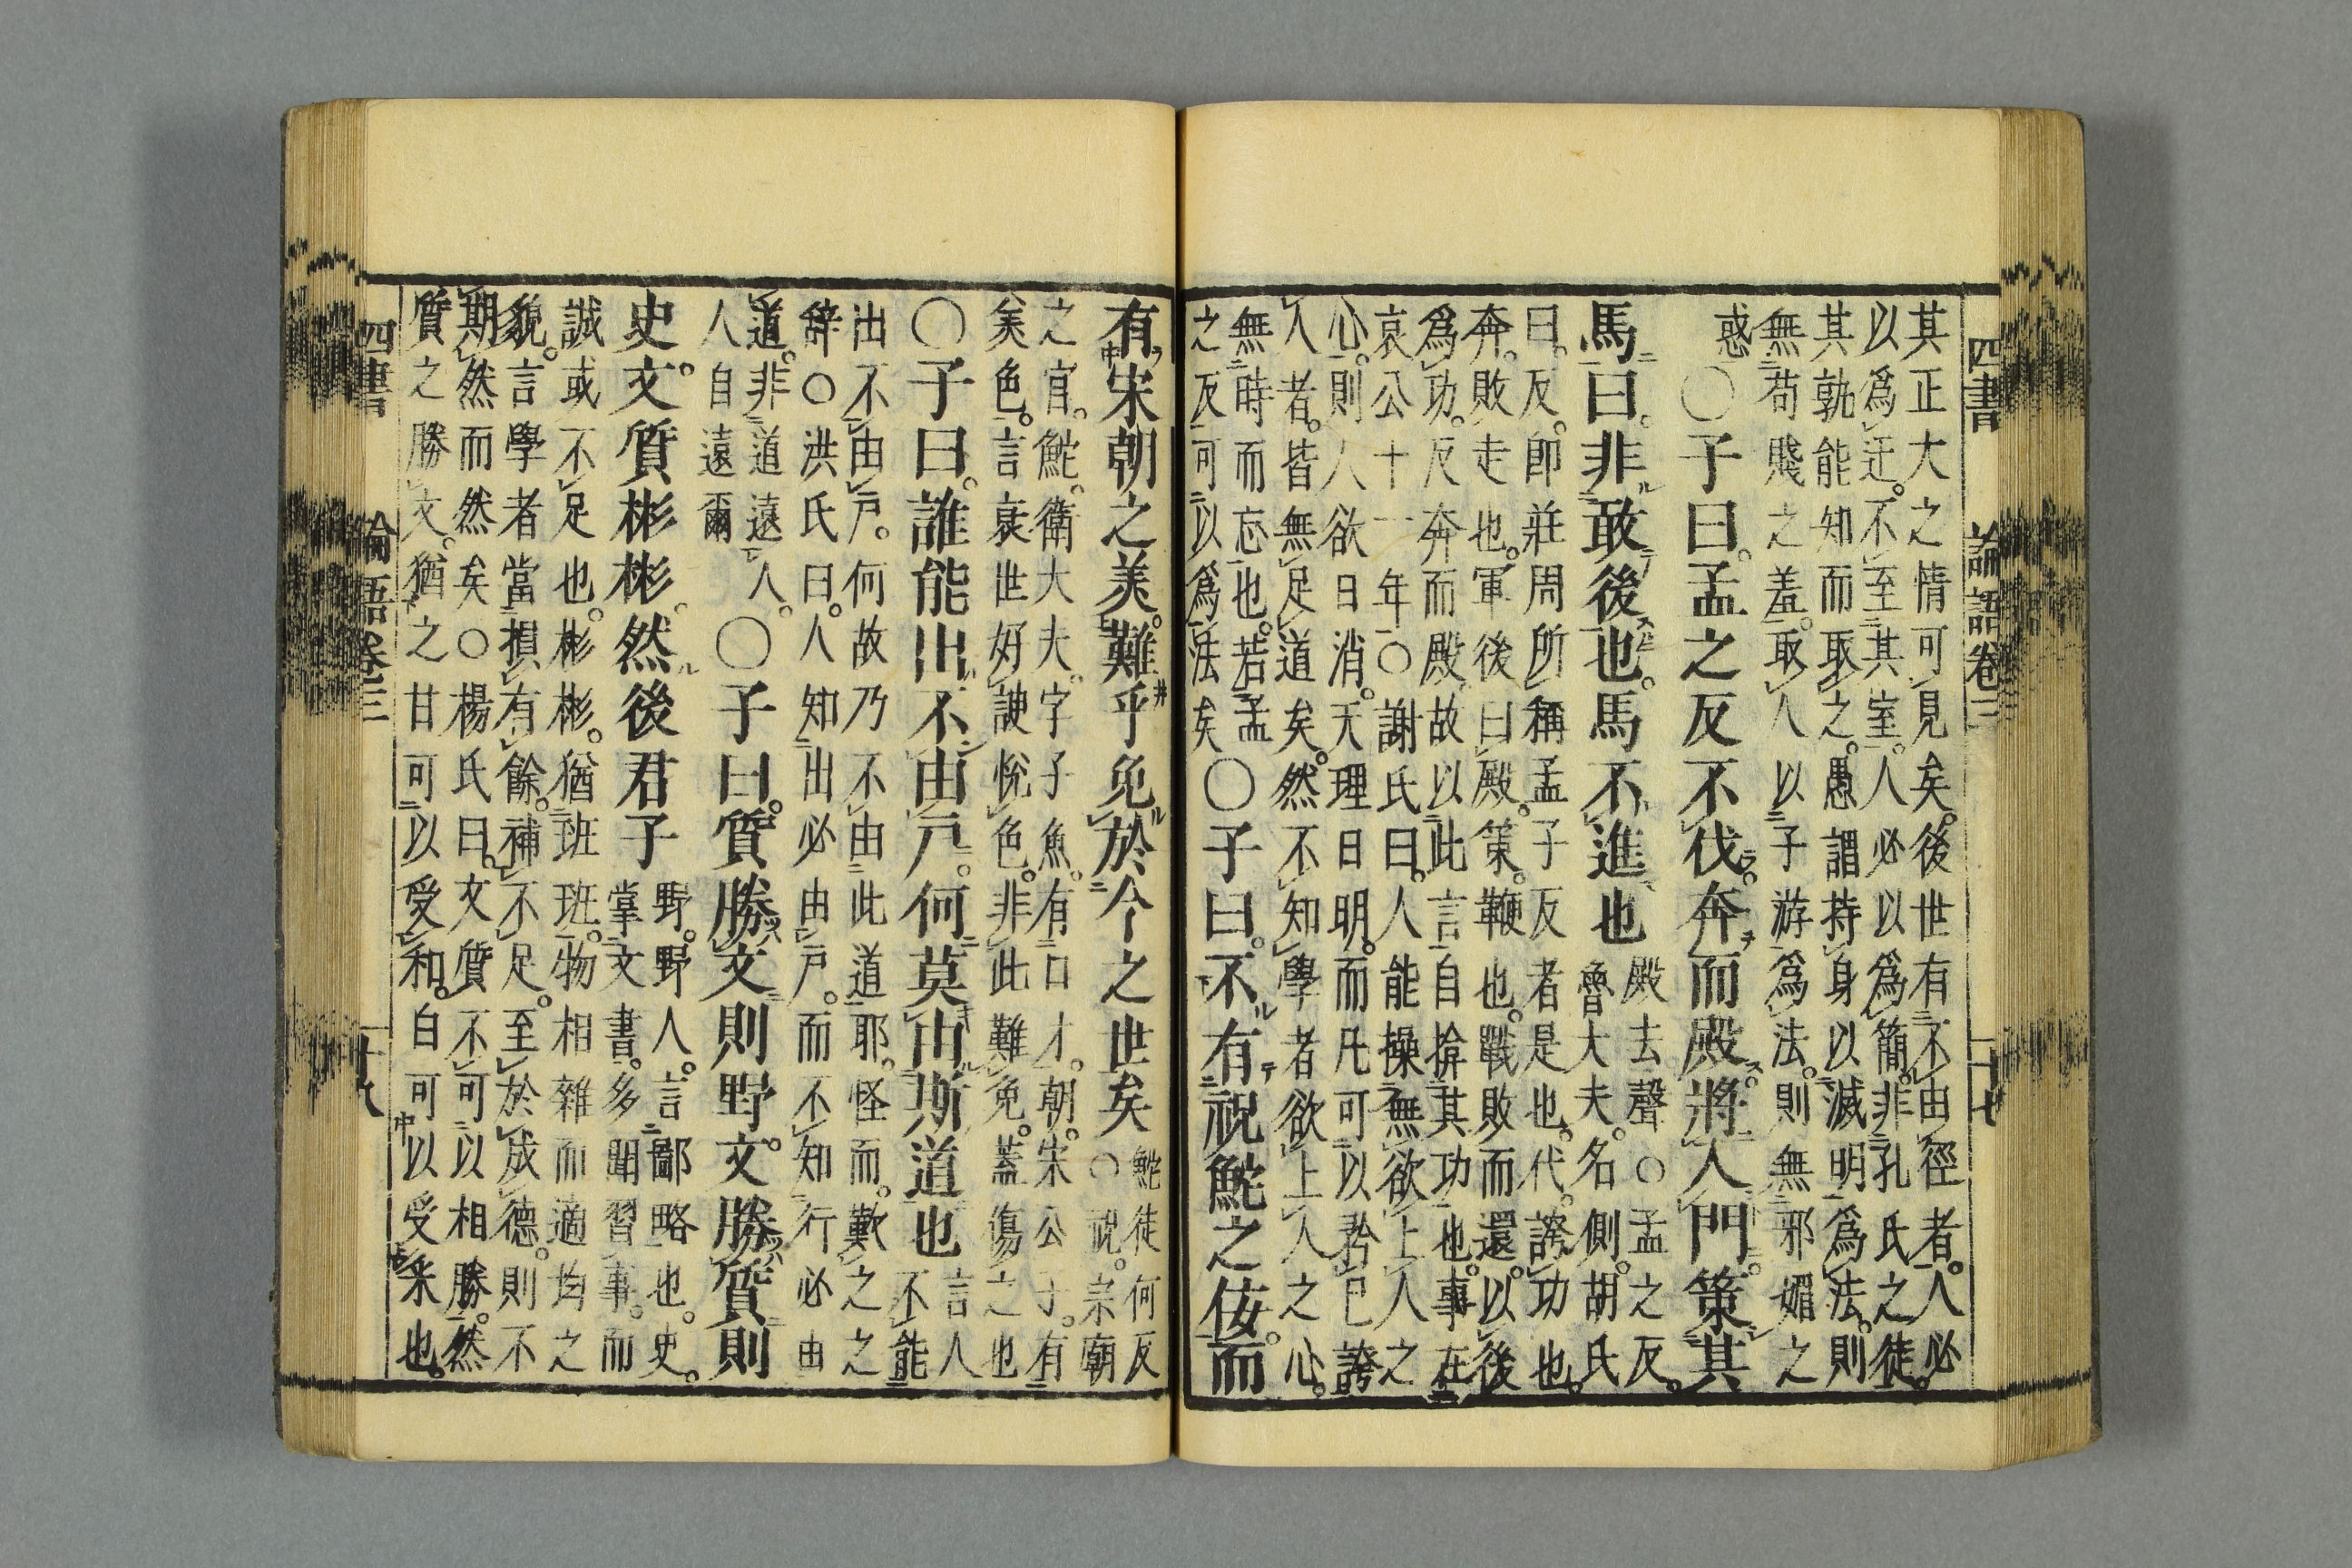 四書 論語卷三 二十七
其正大之情可見矣。後世有不由徑者。人必
以爲迂。不至其室。人必以爲簡。非孔氏之徒。
其孰能知而取之。愚謂持身以滅明爲法。則
無苟賤之羞。取人以子游爲法。則無邪媚之
惑〇子曰。孟之反不伐。奔而殿。將入門。策其
馬曰。非敢後也。馬不進也
殿去聲〇孟之反。
魯大夫。名側。胡氏
曰。反。卽莊周所稱孟子反者是也。代。誇功也。
奔。敗走也。軍後曰殿。策。鞭也。戰敗而還。以後
爲功。反奔而殿。故以此言自揜其功也。事在
哀公十一年〇謝氏曰。人能操無欲上人之
心。則人欲日消。天理日明。而凡可以矜己誇
人者。皆無足道矣。然不知學者欲上人之心。
無時而忘也。若孟
之反可以爲法矣
〇子曰。不有祝鮀之佞。而
有宋朝之美。難乎免於今之世矣
鮀徒何反
〇祝。宗廟
之官。鮀。衛大夫。字子魚。有口才。朝。宋公子。有
美色。言衰世好諛悅色。非此難免。蓋傷之也
〇子曰。誰能出不由戶。何莫由斯道也
言人
不能
出不由戶。何故乃不由此道耶。怪而歎之之
辭〇洪氏曰。人知出必由戶。而不知行必由
道。非道遠人。
人自遠爾
〇子曰。質勝文則野。文勝質則
史。文質彬彬。然後君子
野。野人。言鄙略也。史。
掌文書。多聞習事。而
誠或不足也。彬彬。猶班班。物相雜而適均之
貌。言學者當損有餘。補不足。至於成德。則不
期然而然矣〇楊氏曰。文質不可以相勝。然
質之勝文。猶之甘可以受和。白可以受采也。
四書 論語卷三 二十八